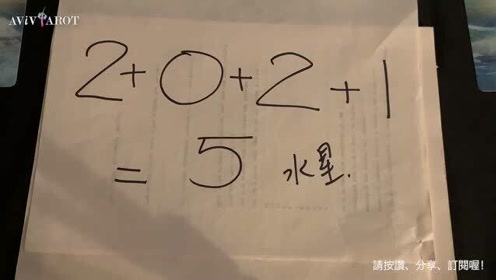 AViV TAROT
2+0+2+1
= 5 水星.
請按讚、分享、訂閱喔!